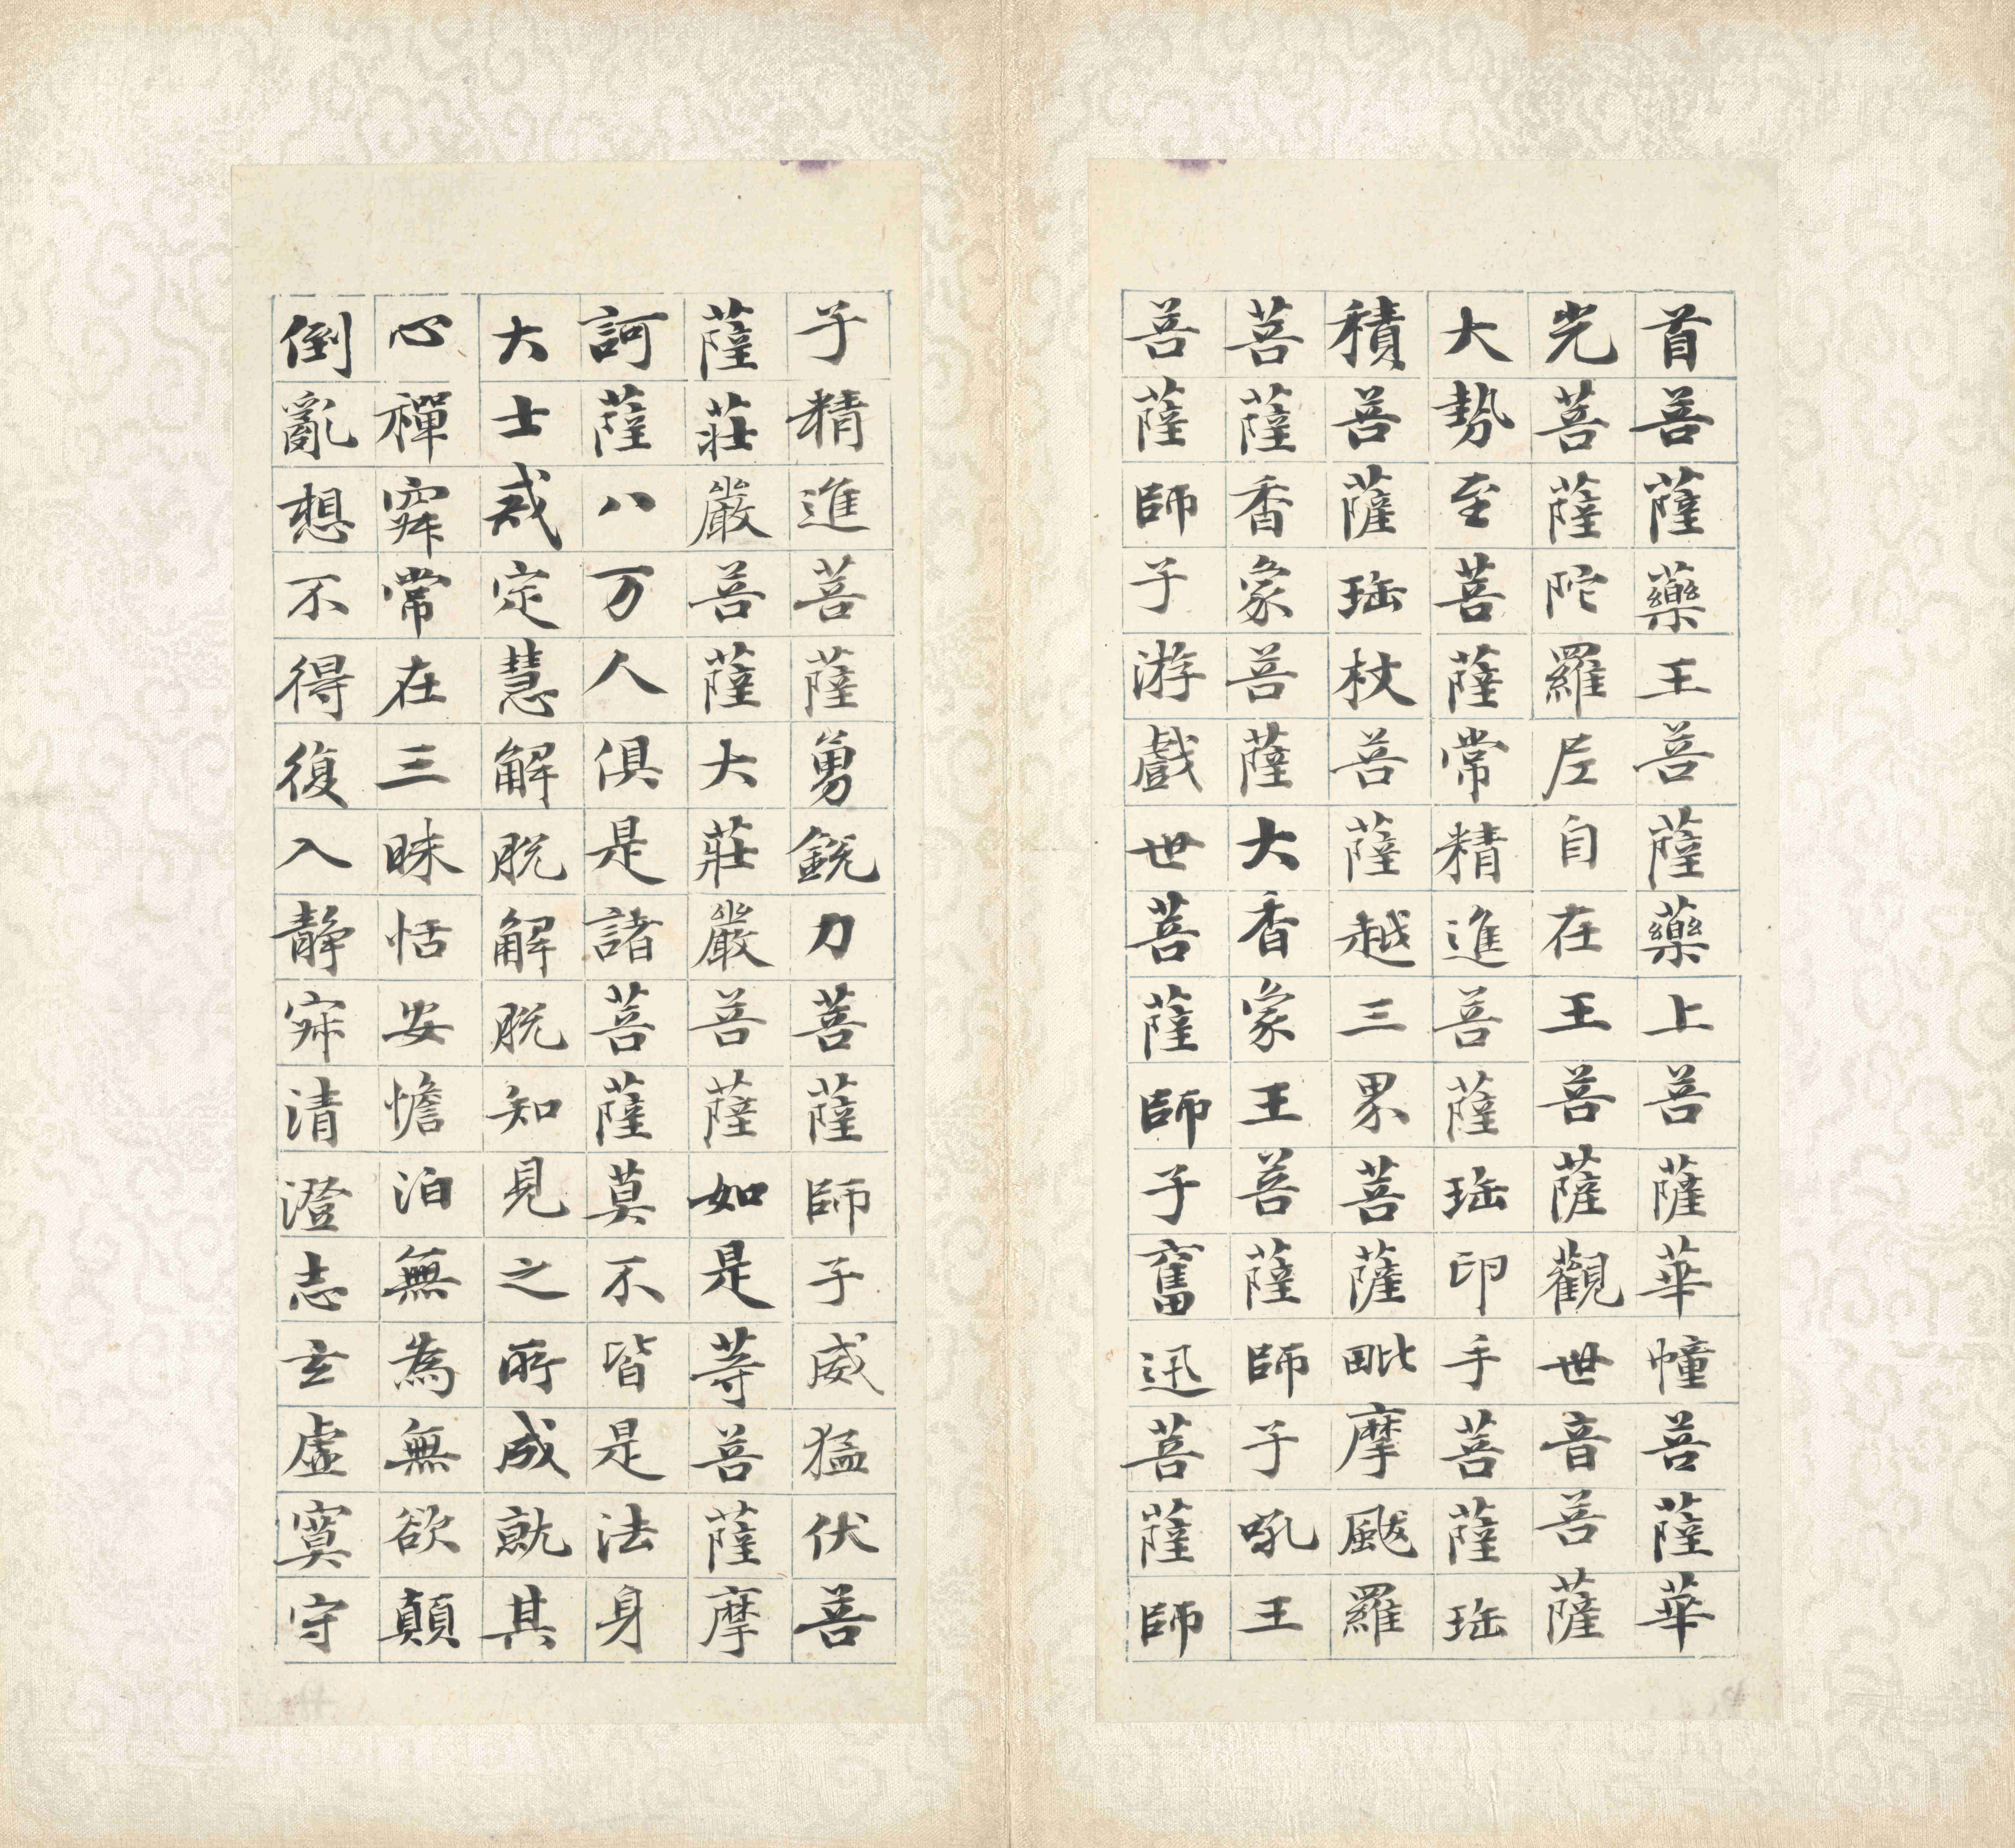 首菩薩藥王菩薩藥上菩薩華幢菩薩華
光菩薩陀羅尼自在王菩薩觀世音菩薩
大勢至菩薩常精進菩薩珤印手菩薩珤
積菩薩珤杖菩薩越三界菩薩毗摩颰羅
菩薩香象菩薩大香象王菩薩師子吼王
菩薩師子游戲世菩薩師子奮迅菩薩師
子精進菩薩勇銳力菩薩師子威猛伏菩
薩莊嚴菩薩大莊嚴菩薩如是等菩薩摩
訶薩八万人俱是諸菩薩莫不皆是法身
大士戒定慧解脫解脫知見之所成就其
心禪寂常在三昧恬安憺泊無為無欲顛
倒亂想不得復入靜寂清澄志玄虛寞守